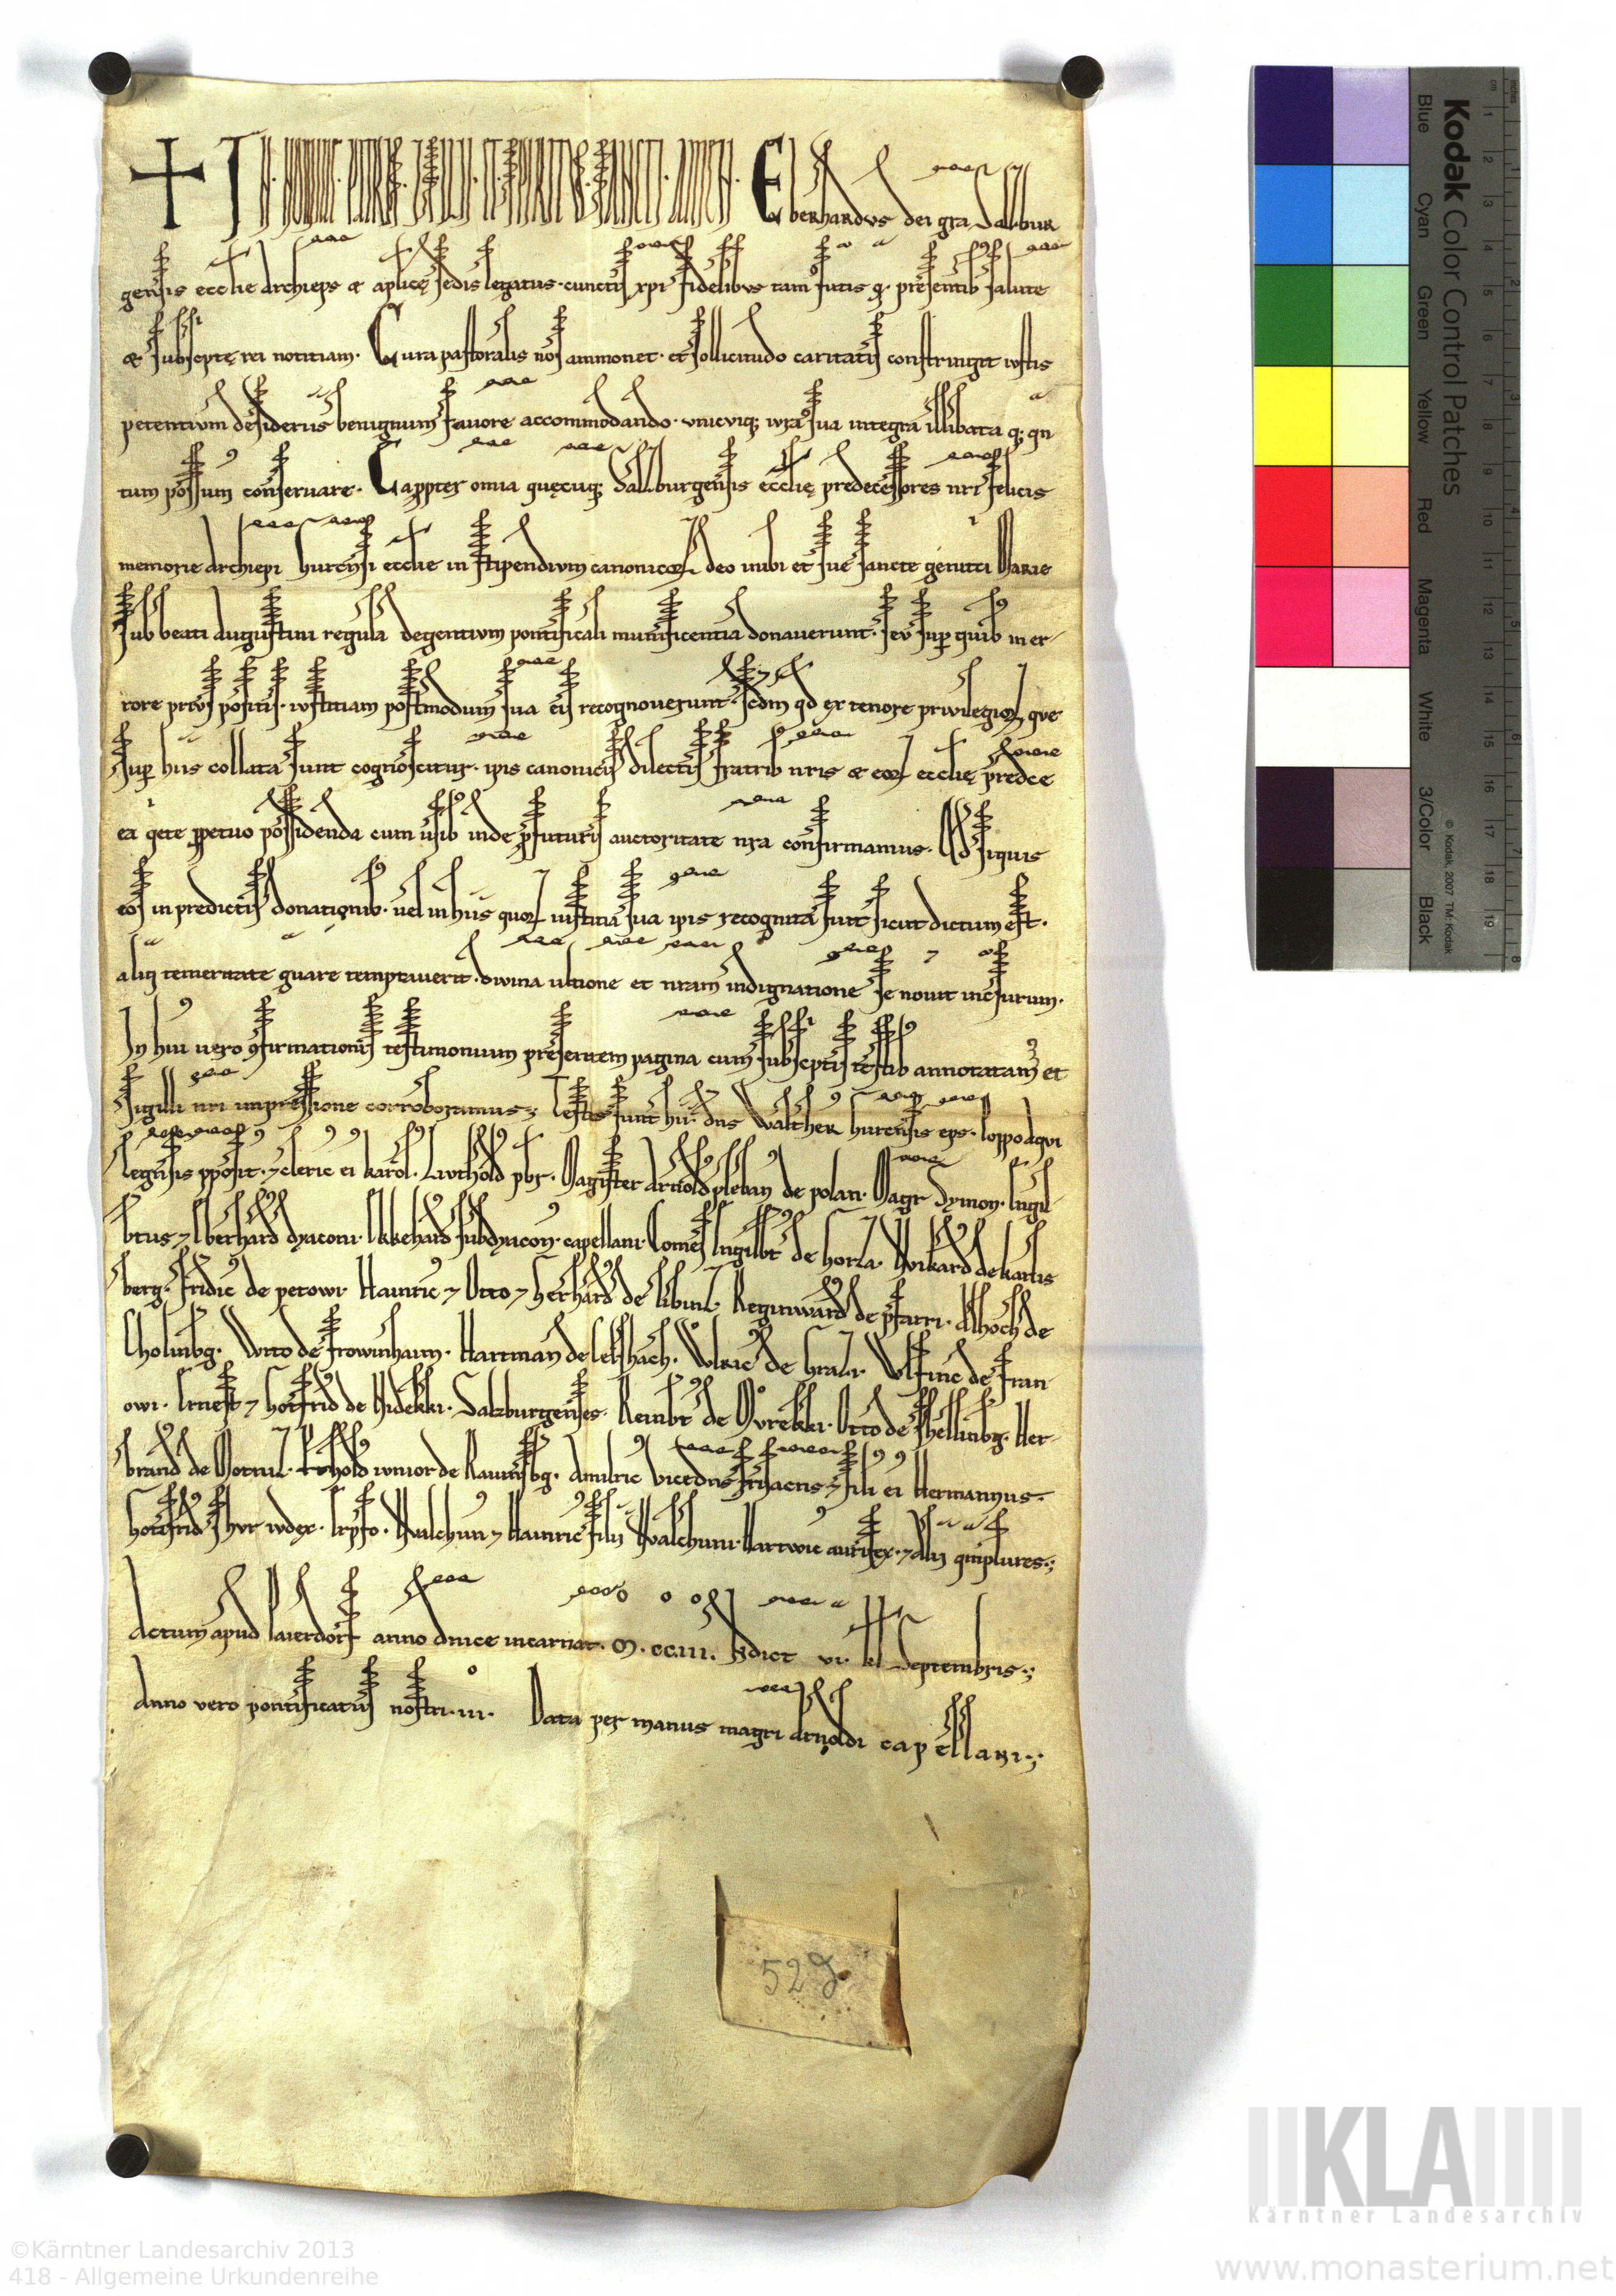 + IN NOMINE PATRIS ET FILII ET SPIRITVS SANCTI AMEN. Eberhardvs dei gra Salzbur
gensis ecclie archieps & aplicę sedis legatus. cunctis xpi fidelibvs tam futis q̄. presentib salute
& subscptę rei notitiam. Cura pastoralis nos ammonet. et sollicitudo caritatis constringit ivstis
petentivm desideriis benignum favore accommodando. vnicviq; ivra sua integra illibata q; qn
tum possum conservare. Eappter omia quęcuq; Salzburgensis ecclię predecessores nri felicis
memorie archiepi Gurcensi ecclie in stipendivm canonicoꝝ deo inibi et sue sancte genitci Marie
sub beati Augustini regula degentivm pontificali munificentia donaverunt. sev sup quib in er-
rore privs positis. ivstitiam postmodum sua eis recognoverunt. scdm qd ex tenore privilegioꝝ que
sup hiis collata sunt cognoscitur. ipis canonicis dilectis fratrib nris & eoꝝ ecclię predce
ea qete ppetuo possidenda cum usib inde pfuturis auctoritate nra confirmamus. Qd siquis
eos in predictis donationib. uel in hiis quoꝝ iustitia sua ipis recognita sunt sicut dictum est.
aliq temeritate guare temptaverit. divina ultione et nram indignatione se novit incsurum.
In hui uero 9firmationis testimonium presentem pagina cum subscptis testib annotatam et
sigilli nri impressione corroboramus; Testes sunt hii. dns Walther Gurcensis eps. Poppo Aqvi
legensis pposit. & cleric ei Karol. Livthold pbr. Magister Arnold pleban de polan. Magr Dymon. Engil
btus & Eberhard dyaconi. Ekkehard subdyacon. capellani. Comes Engilbt de Gorza. Wikard de karlis
berg. Fridic de petowi. Hainric & Otto & Gerhard de libniz. Reginward de pfarri. Alhoch de
Cholmbg. Otto de Frowinhaim. Hartman de lekshach. Volric de Graz. Vlfinc de stan
owi. Ernest & Gotfrid de Nidekki. Salzburgenses. Reinbt de Mvrekki. Otto de Chellinbg. Her-
brand de Dornil. Rehold ivnior de Rannisbg. Amilric vicedns frisacens & filii ei Hermannus.
Gotfrid & hvr ivdex. Eppo. Walchun & Hainric filii Walchuni. Hartwic aurifex. & alii qmplures;
Actum apud laverdorf anno dnice incarnat. M. CC. III. Indict vi. kl Septembris;
Anno vero pontificatus nostri. iii. Data per manus magri Arnoldi capellani;
52 g
Kodak Color Control Patches
Blue Cyan Green Yellow Red Magenta White 3/Color Black
© Kodak, 2007 TM: Kodak
KLA
Kärntner Landesarchiv
©Kärntner Landesarchiv 2013
418 - Allgemeine Urkundenreihe
www.monasterium.net